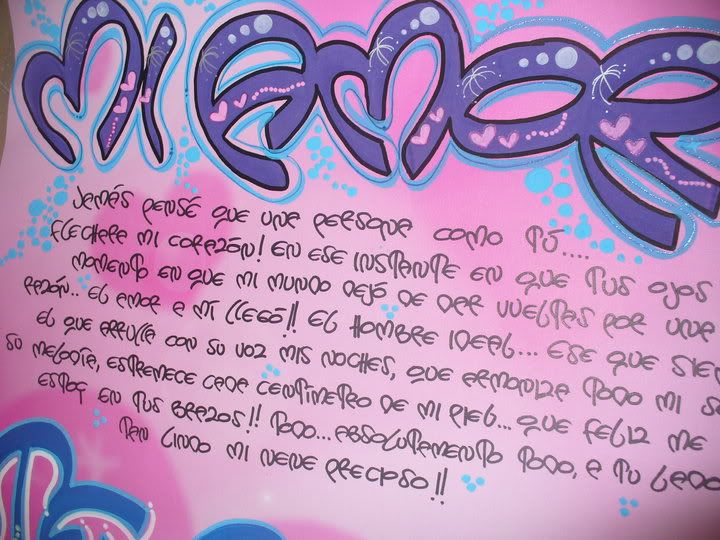 MI AMOR
Jamás pensé que una persona como tú....
flechara mi corazón! En ese instante en que tus ojos
momento en que mi mundo dejó de dar vueltas por una
razón.. el amor a mí llegó!! El hombre ideal... ese que
el que arrulla con su voz mis noches, que armoniza todo mi
su melodía, estremece cada centímetro de mi piel... que feliz me
estoy en tus brazos!! Todo... absolutamento todo, a tu lado
tan lindo mi nene precioso!!